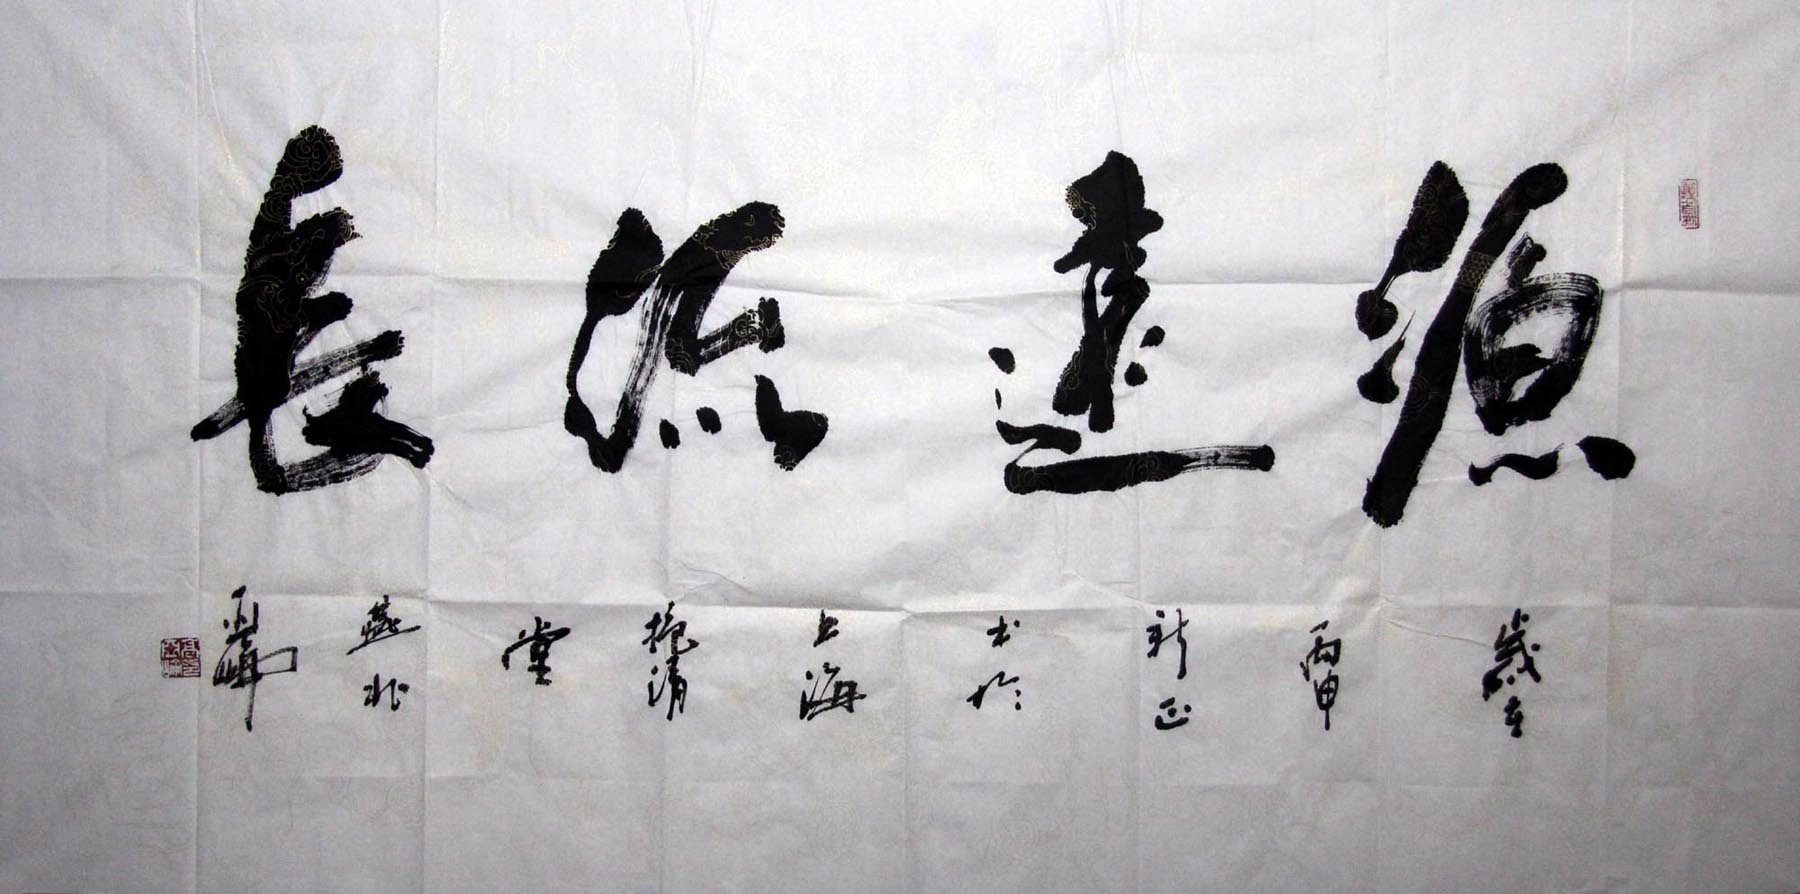 源遠流長
歲在
丙申
新正
書於
上海
挹清
堂
燕北